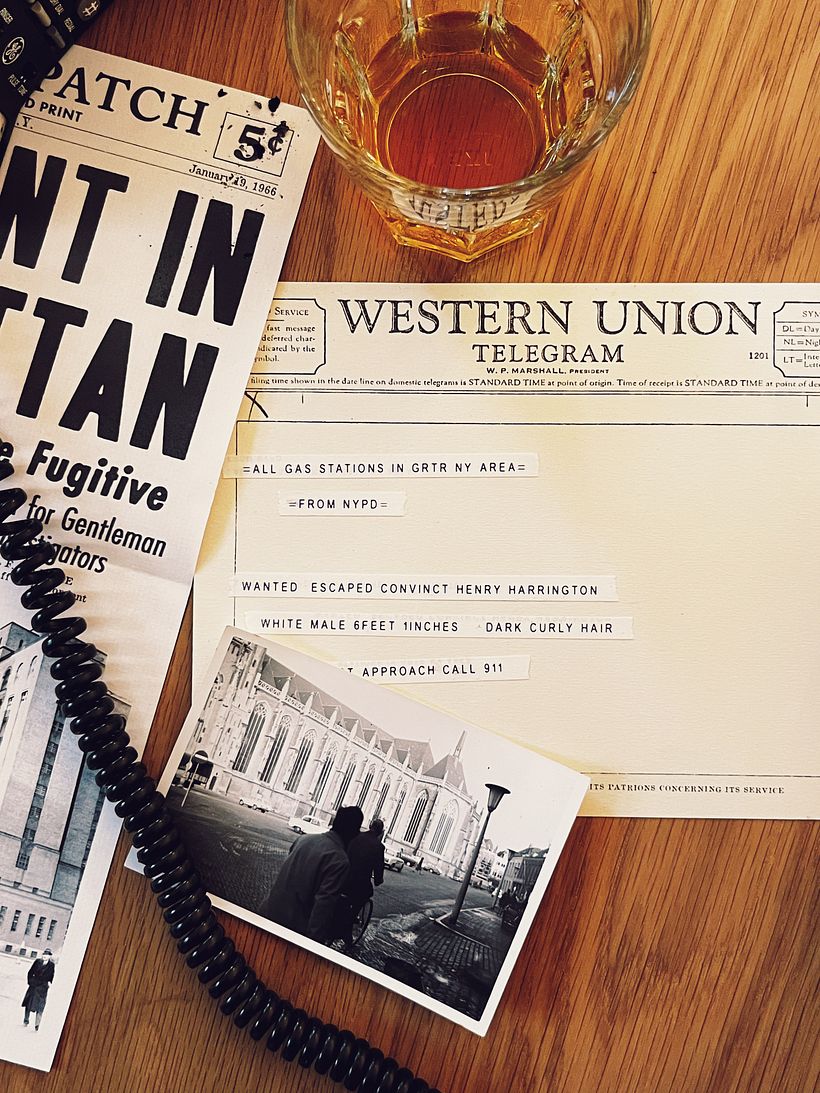 PATCH
D PRINT
.Y.
5¢
January 19, 1966
NT IN
TTAN
e Fugitive
for Gentleman
stigators
SERVICE
fast message
deferred char-
dicated by the
ymbol.
WESTERN UNION
TELEGRAM
W. P. MARSHALL, PRESIDENT
1201
SYM
DL=Day
NL=Nigh
LT=
filing time shown in the date line on domestic telegrams is STANDARD TIME at point of origin. Time of receipt is STANDARD TIME at point of des
=ALL GAS STATIONS IN GRTR NY AREA=
=FROM NYPD=
WANTED ESCAPED CONVINCT HENRY HARRINGTON
WHITE MALE 6FEET 1INCHES DARK CURLY HAIR
T APPROACH CALL 911
ITS PATRIONS CONCERNING ITS SERVICE